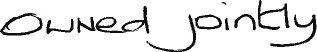 owned jointly